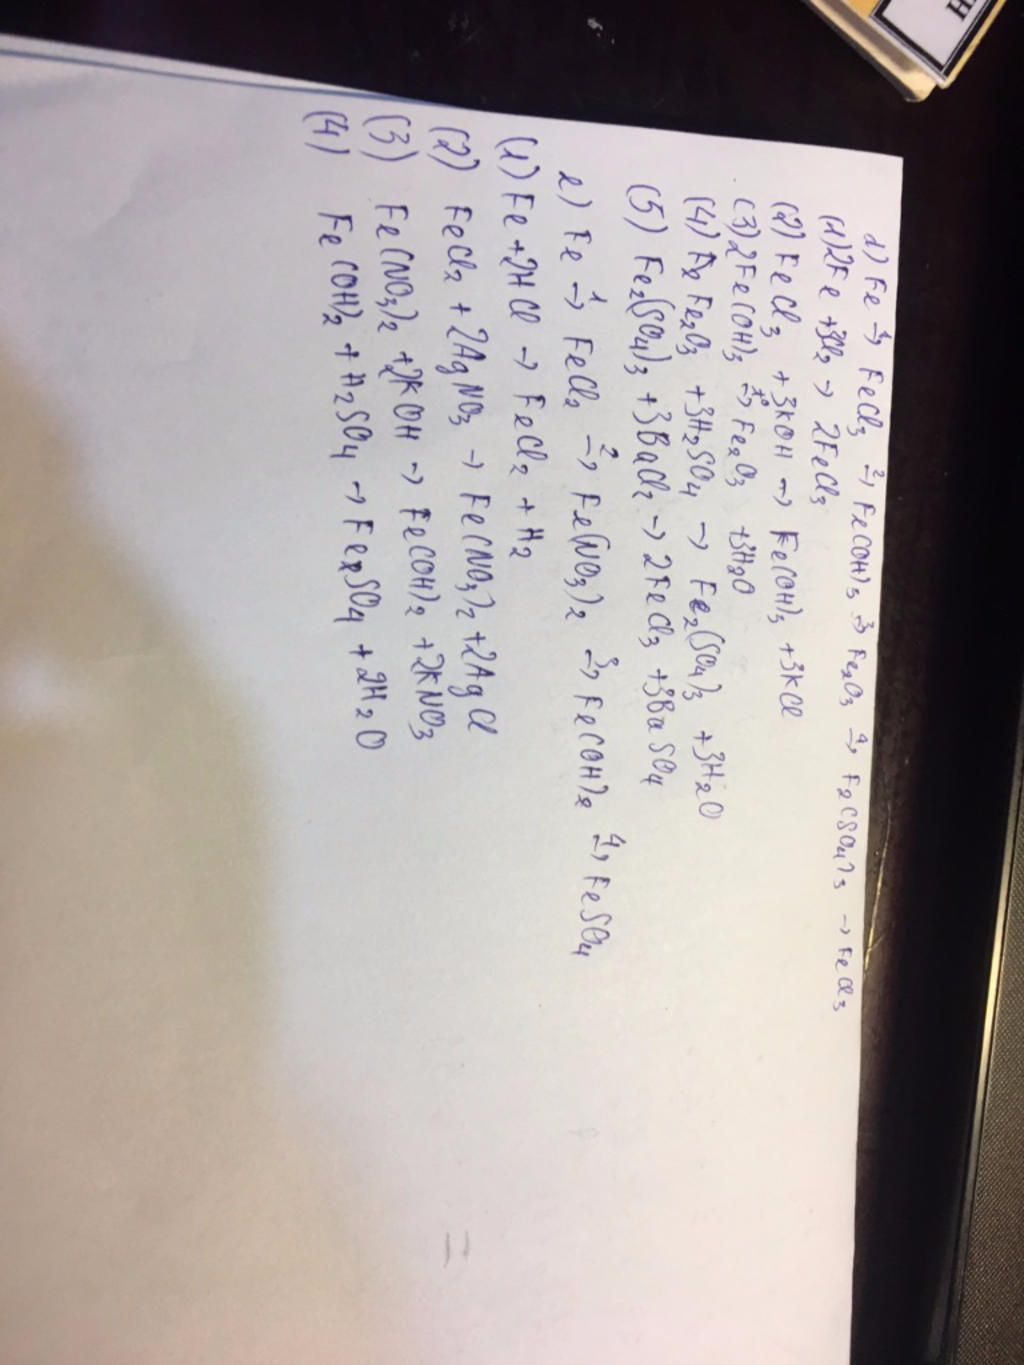 d) Fe →¹ FeCl₃ →² Fe(OH)₃ →³ Fe₂O₃ →⁴ F₂(SO₄)₃ → FeCl₃
(1) 2Fe + 3Cl₂ → 2FeCl₃
(2) FeCl₃ + 3KOH → Fe(OH)₃ + 3KCl
(3) 2Fe(OH)₃ →t° Fe₂O₃ + 3H₂O
(4) Fe₂O₃ + 3H₂SO₄ → Fe₂(SO₄)₃ + 3H₂O
(5) Fe₂(SO₄)₃ + 3BaCl₂ → 2FeCl₃ + 3BaSO₄
e) Fe →¹ FeCl₂ →² Fe(NO₃)₂ →³ Fe(OH)₂ →⁴ FeSO₄
(1) Fe + 2HCl → FeCl₂ + H₂
(2) FeCl₂ + 2AgNO₃ → Fe(NO₃)₂ + 2AgCl
(3) Fe(NO₃)₂ + 2KOH → Fe(OH)₂ + 2KNO₃
(4) Fe(OH)₂ + H₂SO₄ → FeSO₄ + 2H₂O